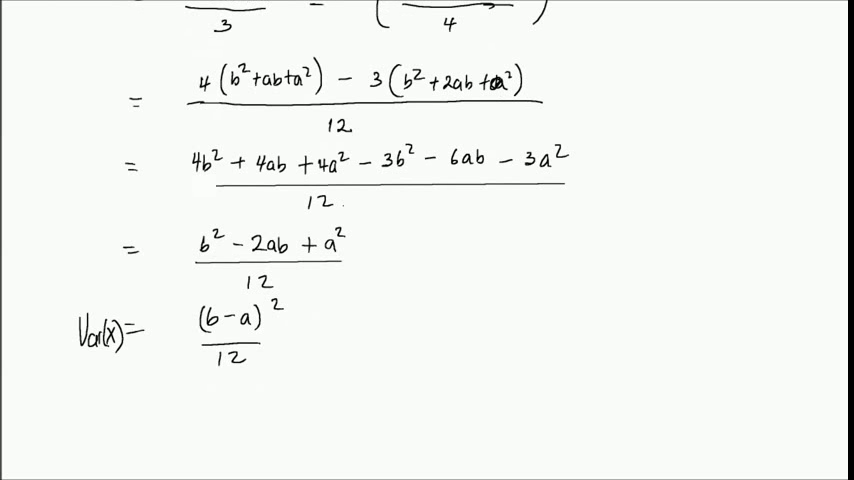 3 - ( 4 )
= 4(b²+ab+a²) - 3(b²+2ab+a²) / 12
= 4b² + 4ab + 4a² - 3b² - 6ab - 3a² / 12
= b² - 2ab + a² / 12
Var(x) = (b-a)² / 12